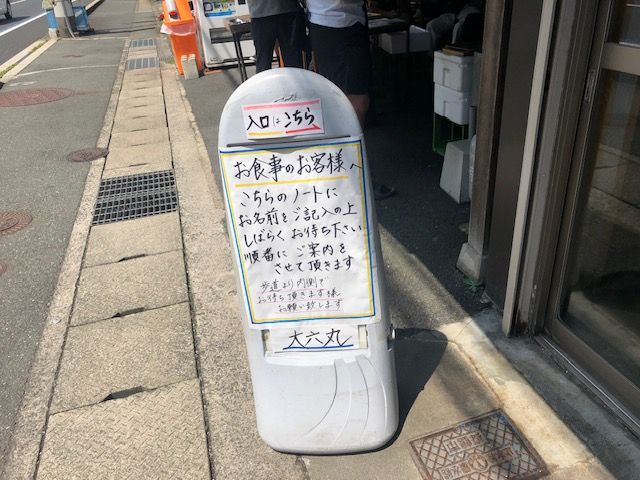 入口はこちら
お食事のお客様へ
こちらのノートに
お名前をご記入の上
しばらくお待ち下さい
順番にご案内を
させて頂きます
歩道より内側で
お待ち頂きます様
お願い致します
大六丸